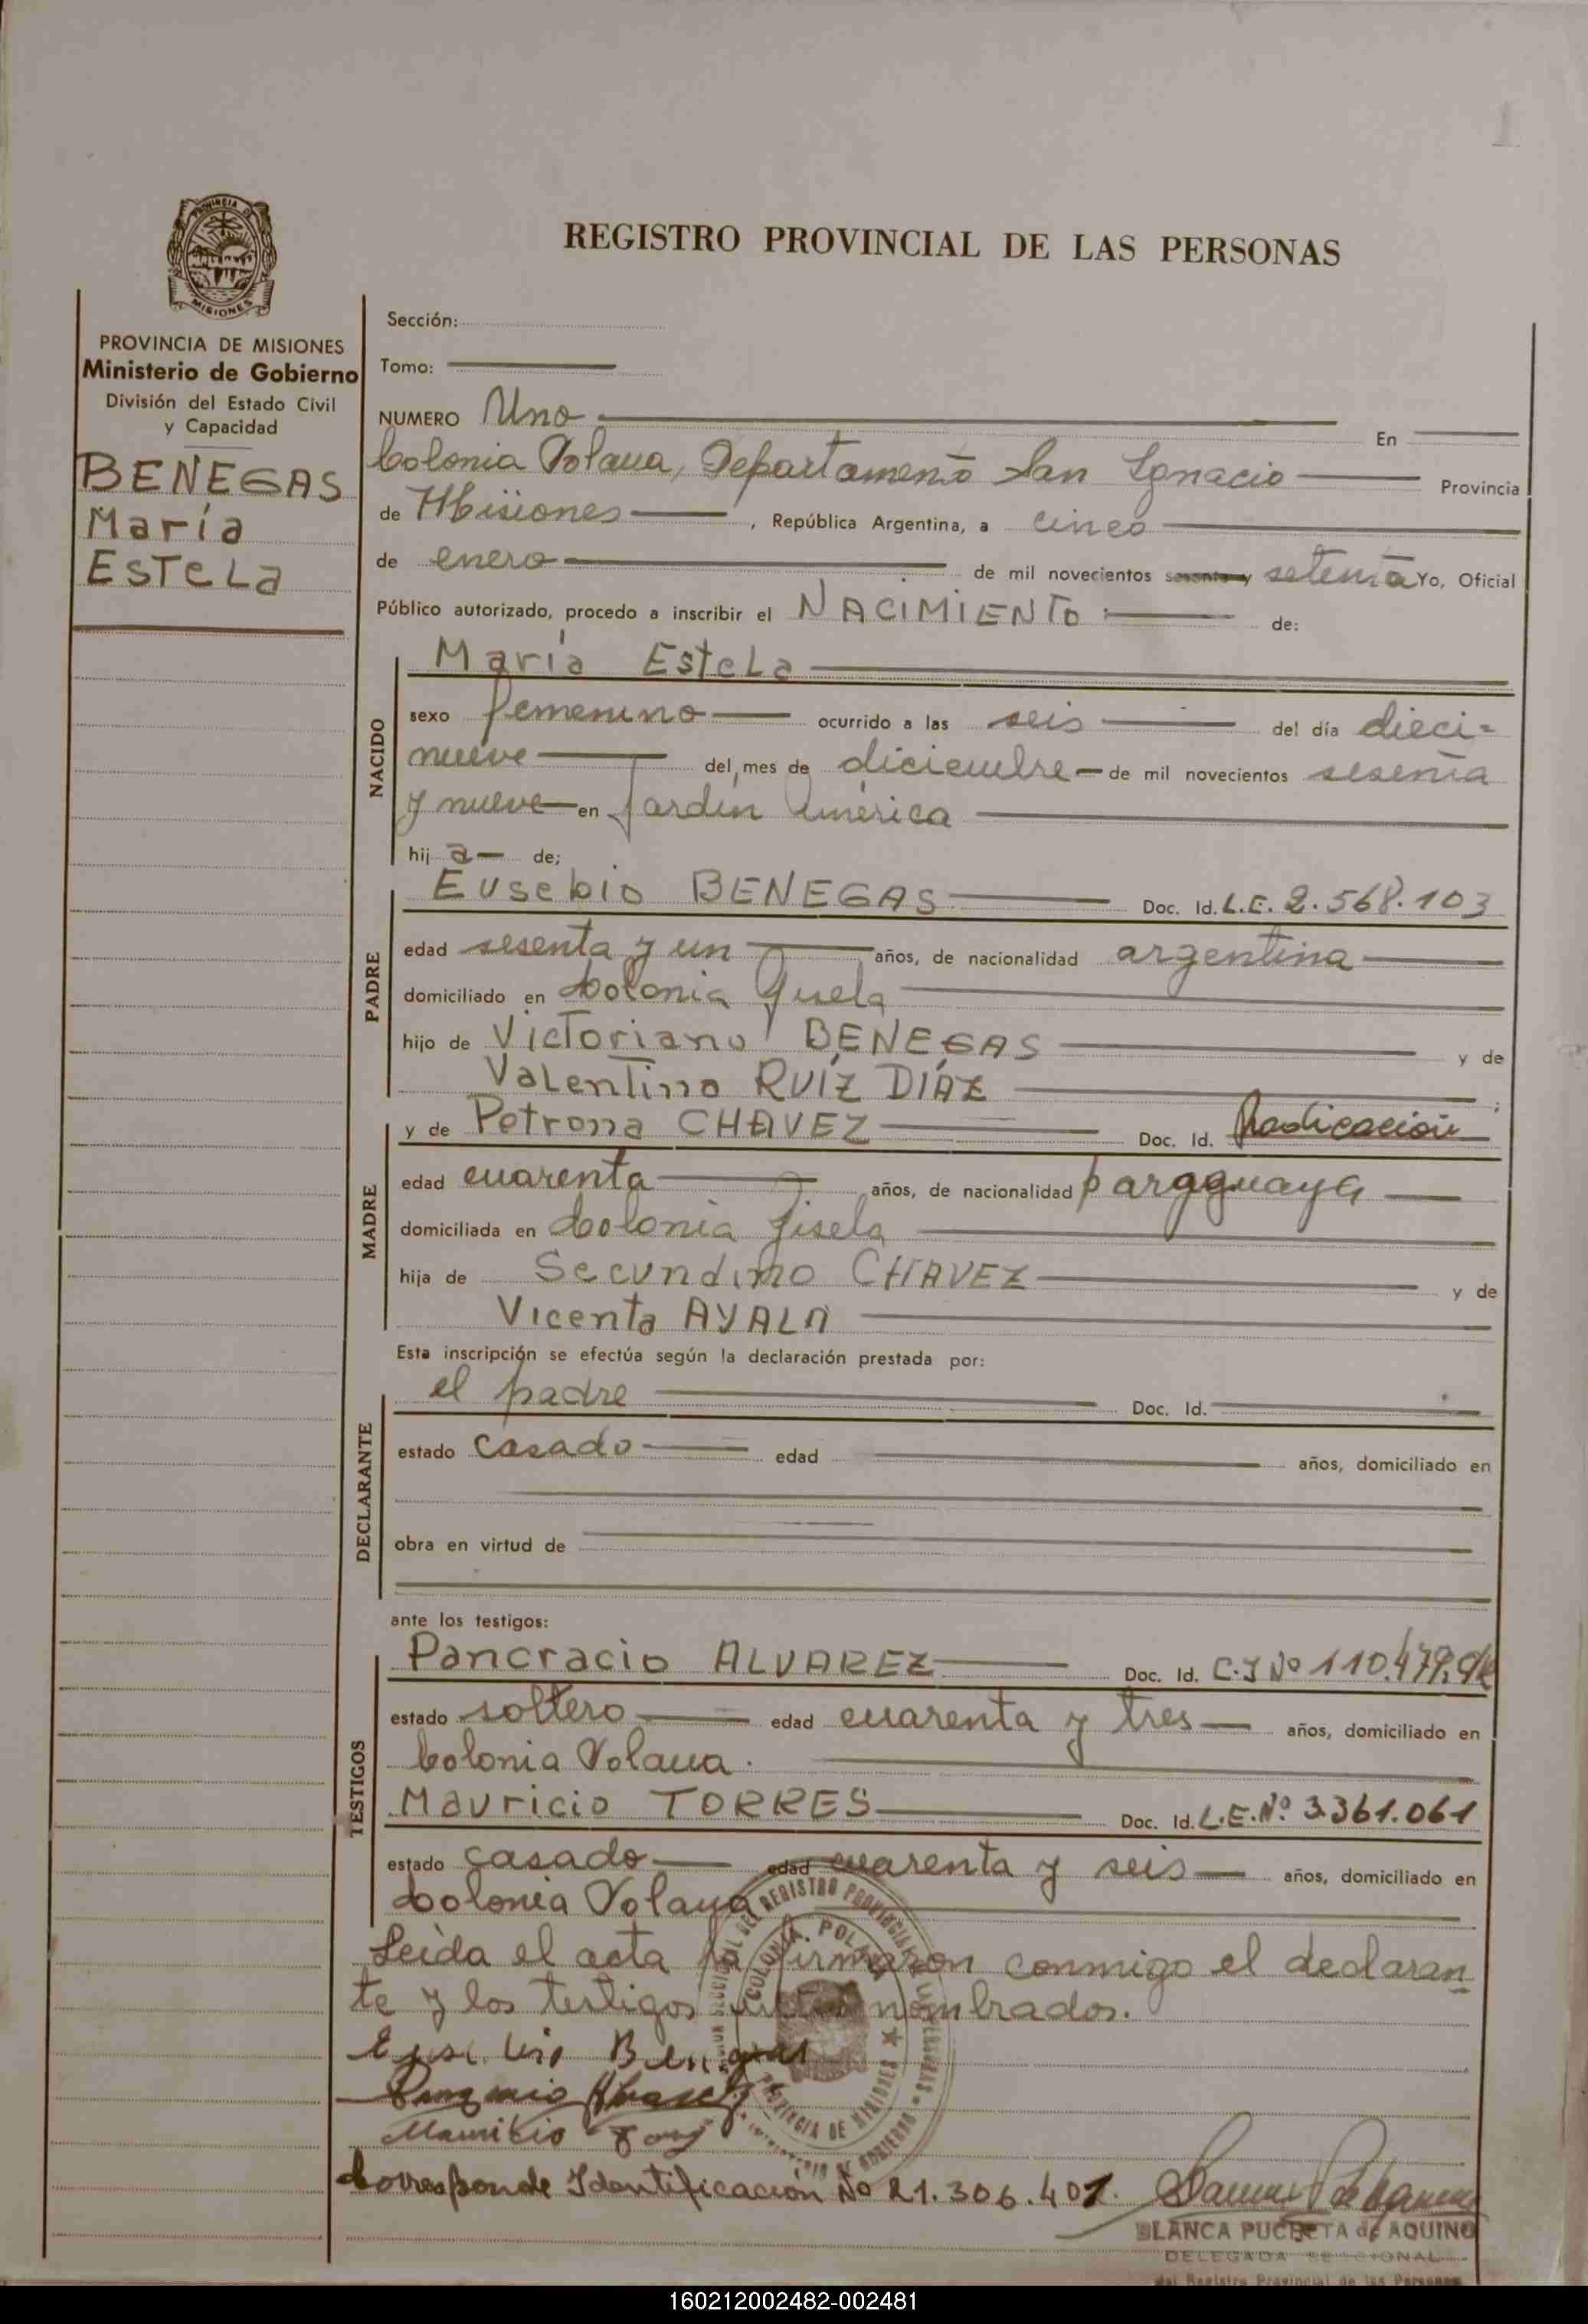 1
PROVINCIA DE MISIONES
REGISTRO PROVINCIAL DE LAS PERSONAS
PROVINCIA DE MISIONES
Ministerio de Gobierno
División del Estado Civil
y Capacidad
BENEGAS
María
Estela
Sección:
Tomo:
NUMERO Uno
En
Colonia Polana, Departamento San Ignacio Provincia
de Misiones, República Argentina, a cinco
de enero de mil novecientos sesenta y setenta Yo, Oficial
Público autorizado, procedo a inscribir el NACIMIENTO de:
NACIDO
María Estela
sexo femenino ocurrido a las seis del día dieci-
nueve del mes de diciembre de mil novecientos sesenta
y nueve en Jardín América
hij a de;
PADRE
Eusebio BENEGAS Doc. Id. L.E. 2.568.103
edad sesenta y un años, de nacionalidad argentina
domiciliado en Colonia Gisela
hijo de Victoriano BENEGAS y de
Valentina RUÍZ DÍAZ ;
MADRE
y de Petrona CHAVEZ Doc. Id. Radicación
edad cuarenta años, de nacionalidad paraguaya
domiciliada en Colonia Gisela
hija de Secundino CHAVEZ y de
Vicenta AYALA
Esta inscripción se efectúa según la declaración prestada por:
DECLARANTE
el padre Doc. Id.
estado casado edad años, domiciliado en
obra en virtud de
ante los testigos:
TESTIGOS
Pancracio ALVAREZ Doc. Id. C.I Nº 110.479.
estado soltero edad cuarenta y tres años, domiciliado en
Colonia Polana.
Mauricio TORRES Doc. Id. L.E. Nº 3.361.061
estado casado edad cuarenta y seis años, domiciliado en
Colonia Polana
Leída el acta la firmaron conmigo el declaran
te y los testigos nombrados.
Eusebio Benegas
Mauricio
Corresponde Identificación Nº 21.306.401.
BLANCA PUCHETA de AQUINO
DELEGADA SECCIONAL
del Registro Provincial de las Personas
160212002482-002481